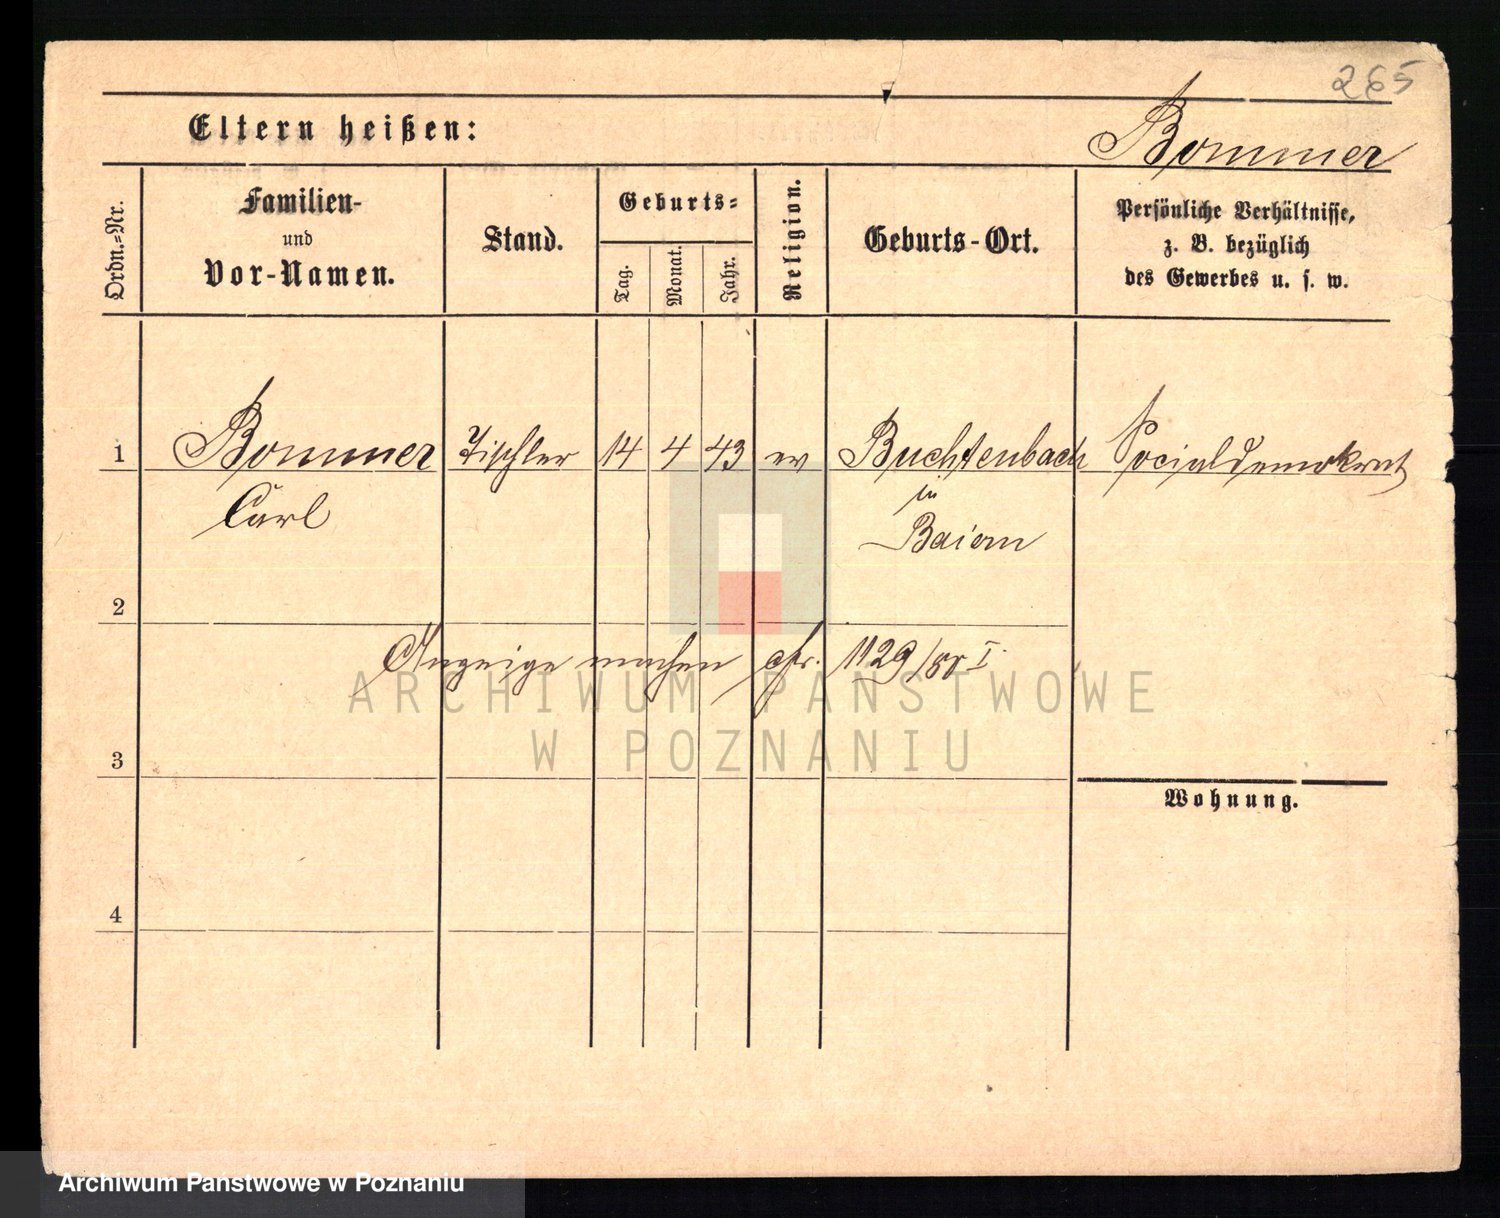 265
Eltern heißen:
Bommer
Ordn.-Nr.
Familien-
und
Vor-Namen.
Stand.
Geburts-
Tag.
Monat.
Jahr.
Religion.
Geburts-Ort.
Persönliche Verhältnisse,
z. B. bezüglich
des Gewerbes u. s. w.
1 Bommer Tischler 14 4 43 ev Buchtenbach Socialdemokrat
Carl
in
Baiern
2
Anzeige machen cfr. 1129/ I
ARCHIWUM PAŃSTWOWE
W POZNANIU
3
Wohnung.
4
Archiwum Państwowe w Poznaniu